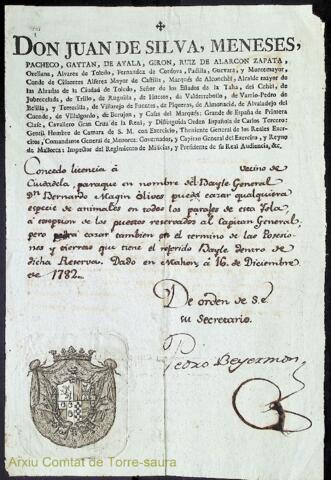 DON JUAN DE SILVA, MENESES,
PACHECO, GAYTAN, DE AYALA, GIRON, RUIZ DE ALARCON ZAPATA,
Orellana, Alvarez de Toledo, Fernandez de Cordova, Padilla, Guevara, y Montemayor,
Conde de Cifuentes Alferez Mayor de Castilla, Marqués de Alconchél, Alcalde mayor de
las Alzadas de la Ciudad de Toledo, Señor de los Estados de la Taha, del Cehél, de
Jubrecelada, de Trillo, de Ruguilla, de Huetos, de Valderrebollo, de Barrio-Pedro de
y Torrecilla, de Villarejo de Fuentes, de Piqueras, de Almonacid, de Alvaladejo del
Cuende, de Villalgordo, de Burujon, y Casa del Marqués, Grande de España de Primera
Clase, Cavallero Gran Cruz de la Real, y Distinguida Orden Española de Carlos Tercero:
Gentil Hombre de Camara de S. M. con Exercicio, Theniente General de los Reales Exer-
citos, Comandante General de Menorca: Governador, y Capitan General del Exercito, y Reyno
de Mallorca: Inspector del Regimiento de Milicias, y Presidente de su Real Audiencia, &c.
Concedo licencia à Vecino de
Ciutadela, paraque en nombre del Bayle General
Dn. Bernardo Magin Olives pueda cazar qualquiera
especie de animales en todos los parajes de esta Ysla,
à excepcion de los puestos reservados al Capitan General,
pero podrá cazar tambien en el termino de las Posesio-
nes y tierras que tiene el referido Bayle dentro de
dicha Reserva. Dado en Mahon à 16. de Diciembre
de 1782.
De orden de S.E.
su Secretario.
Pedro Beyermon
Arxiu Comtat de Torre-saura